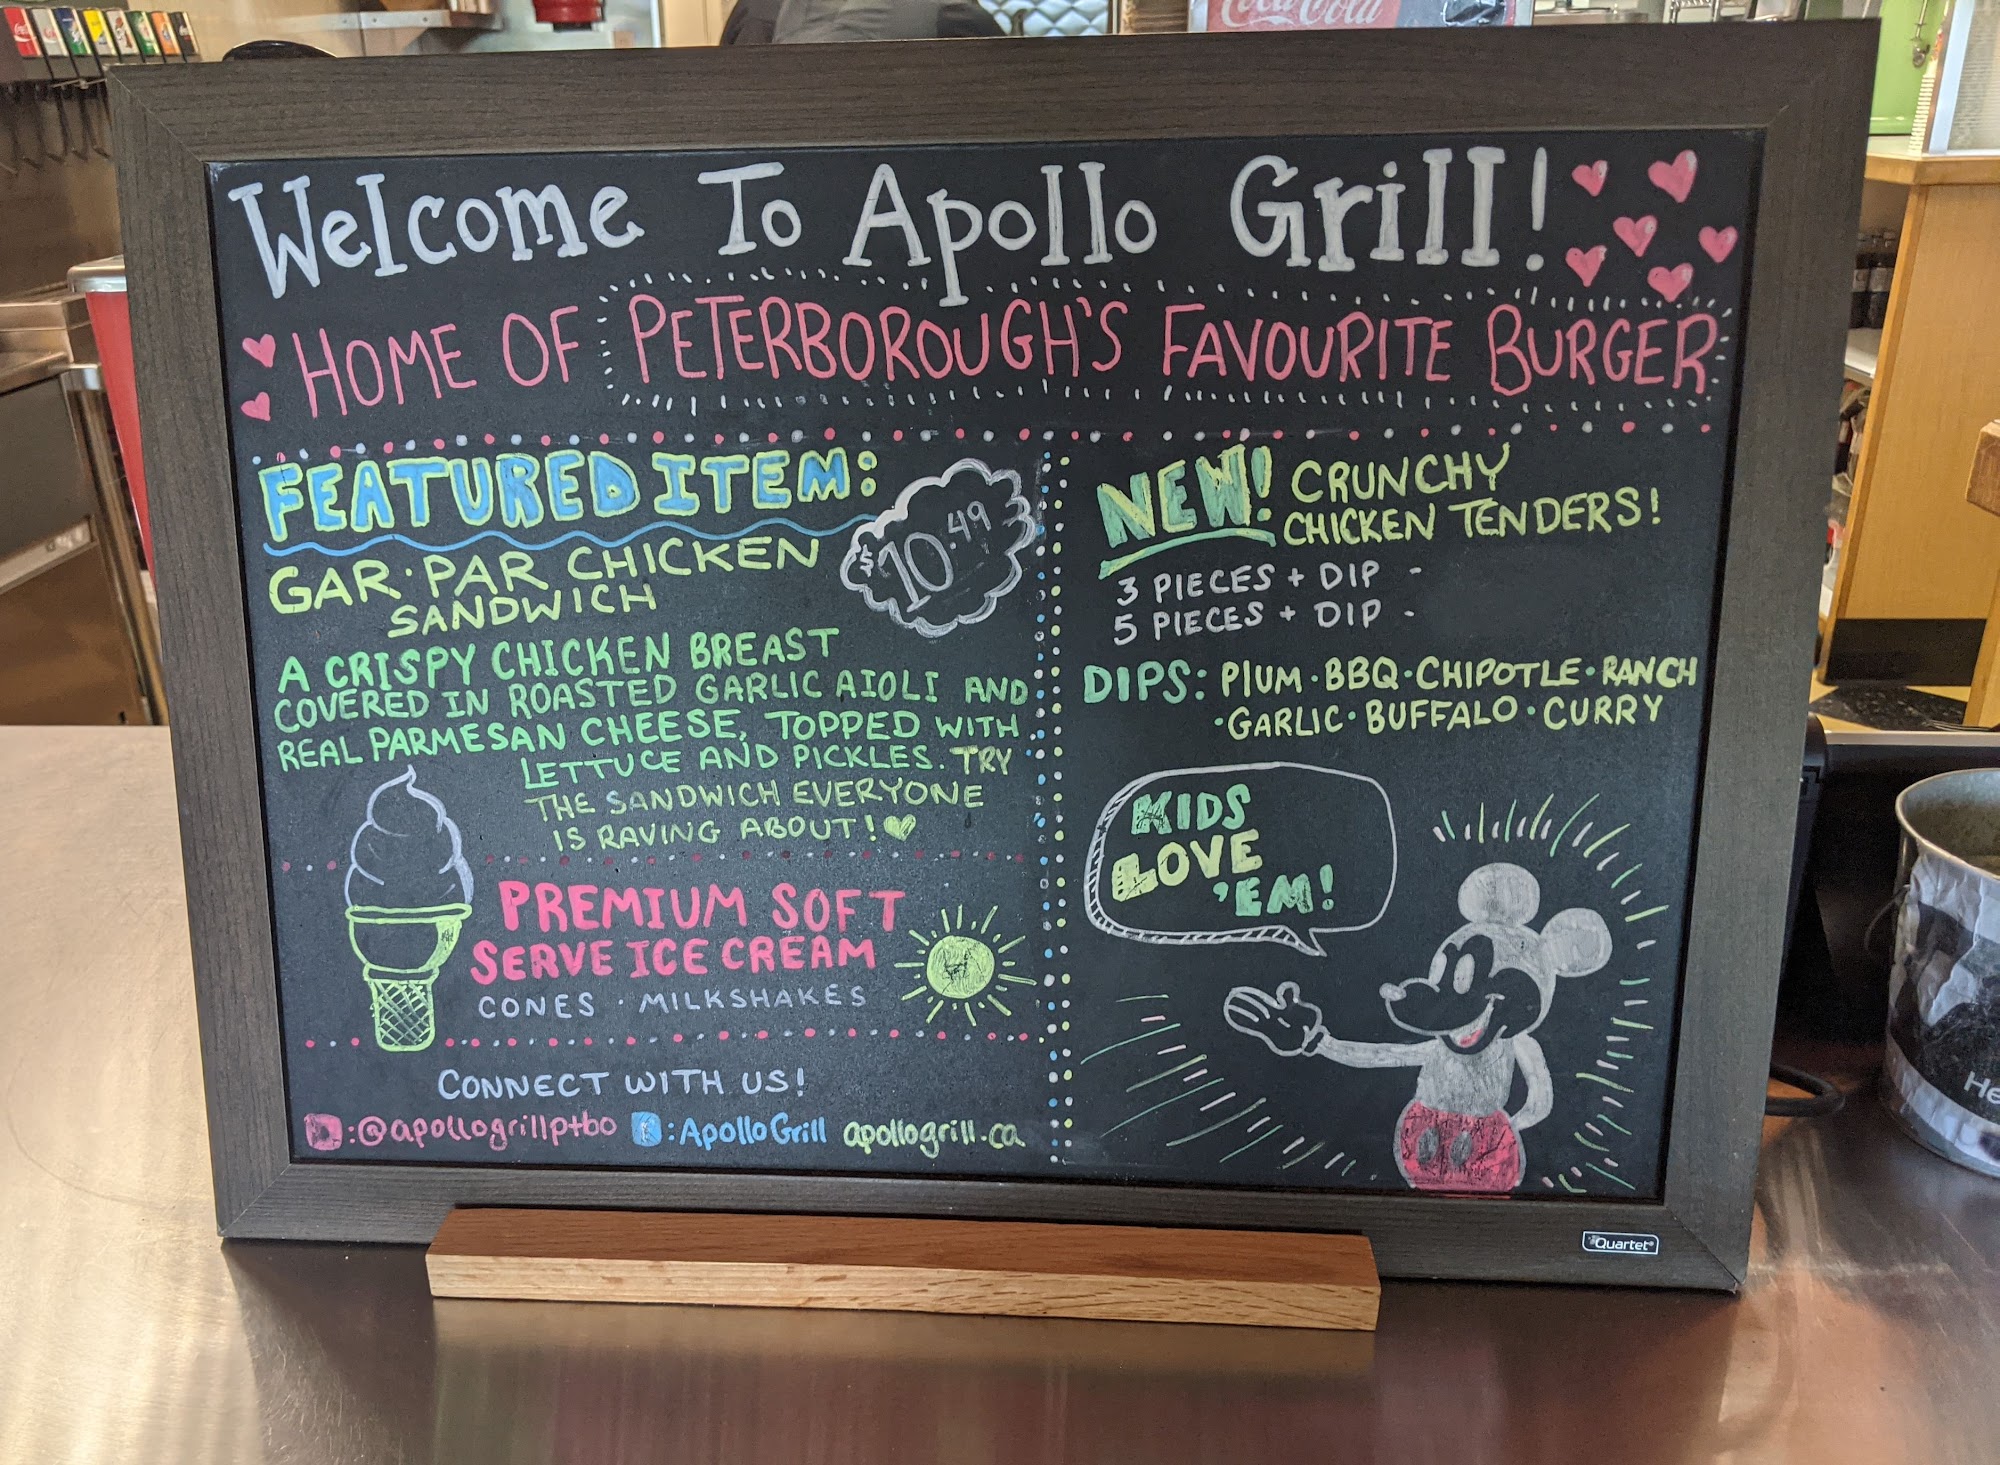 Coca-Cola
Welcome To Apollo Grill!
HOME OF PETERBOROUGH'S FAVOURITE BURGER
FEATURED ITEM:
$10.49
GAR·PAR CHICKEN
SANDWICH
A CRISPY CHICKEN BREAST
COVERED IN ROASTED GARLIC AIOLI AND
REAL PARMESAN CHEESE, TOPPED WITH
LETTUCE AND PICKLES. TRY
THE SANDWICH EVERYONE
IS RAVING ABOUT!
PREMIUM SOFT
SERVE ICE CREAM
CONES · MILKSHAKES
CONNECT WITH US!
:@apollogrillptbo :ApolloGrill apollogrill.ca
NEW! CRUNCHY
CHICKEN TENDERS!
3 PIECES + DIP -
5 PIECES + DIP -
DIPS: PLUM·BBQ·CHIPOTLE·RANCH
·GARLIC·BUFFALO·CURRY
KIDS
LOVE
'EM!
Quartet